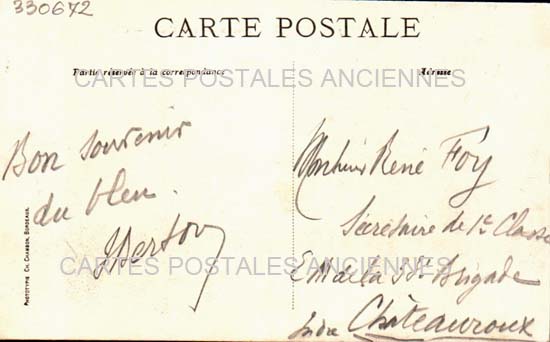 330672
CARTE POSTALE
Partie réservée à la correspondance
Adresse
CARTES POSTALES ANCIENNES
Bon souvenir
du bleu.
Monsieur René Foy
Secrétaire de 1e Classe
CARTES POSTALES ANCIENNES
E M de la Brigade
Indre Châteauroux
PHOTOTYPIE CH. CHAMBON, BORDEAUX.